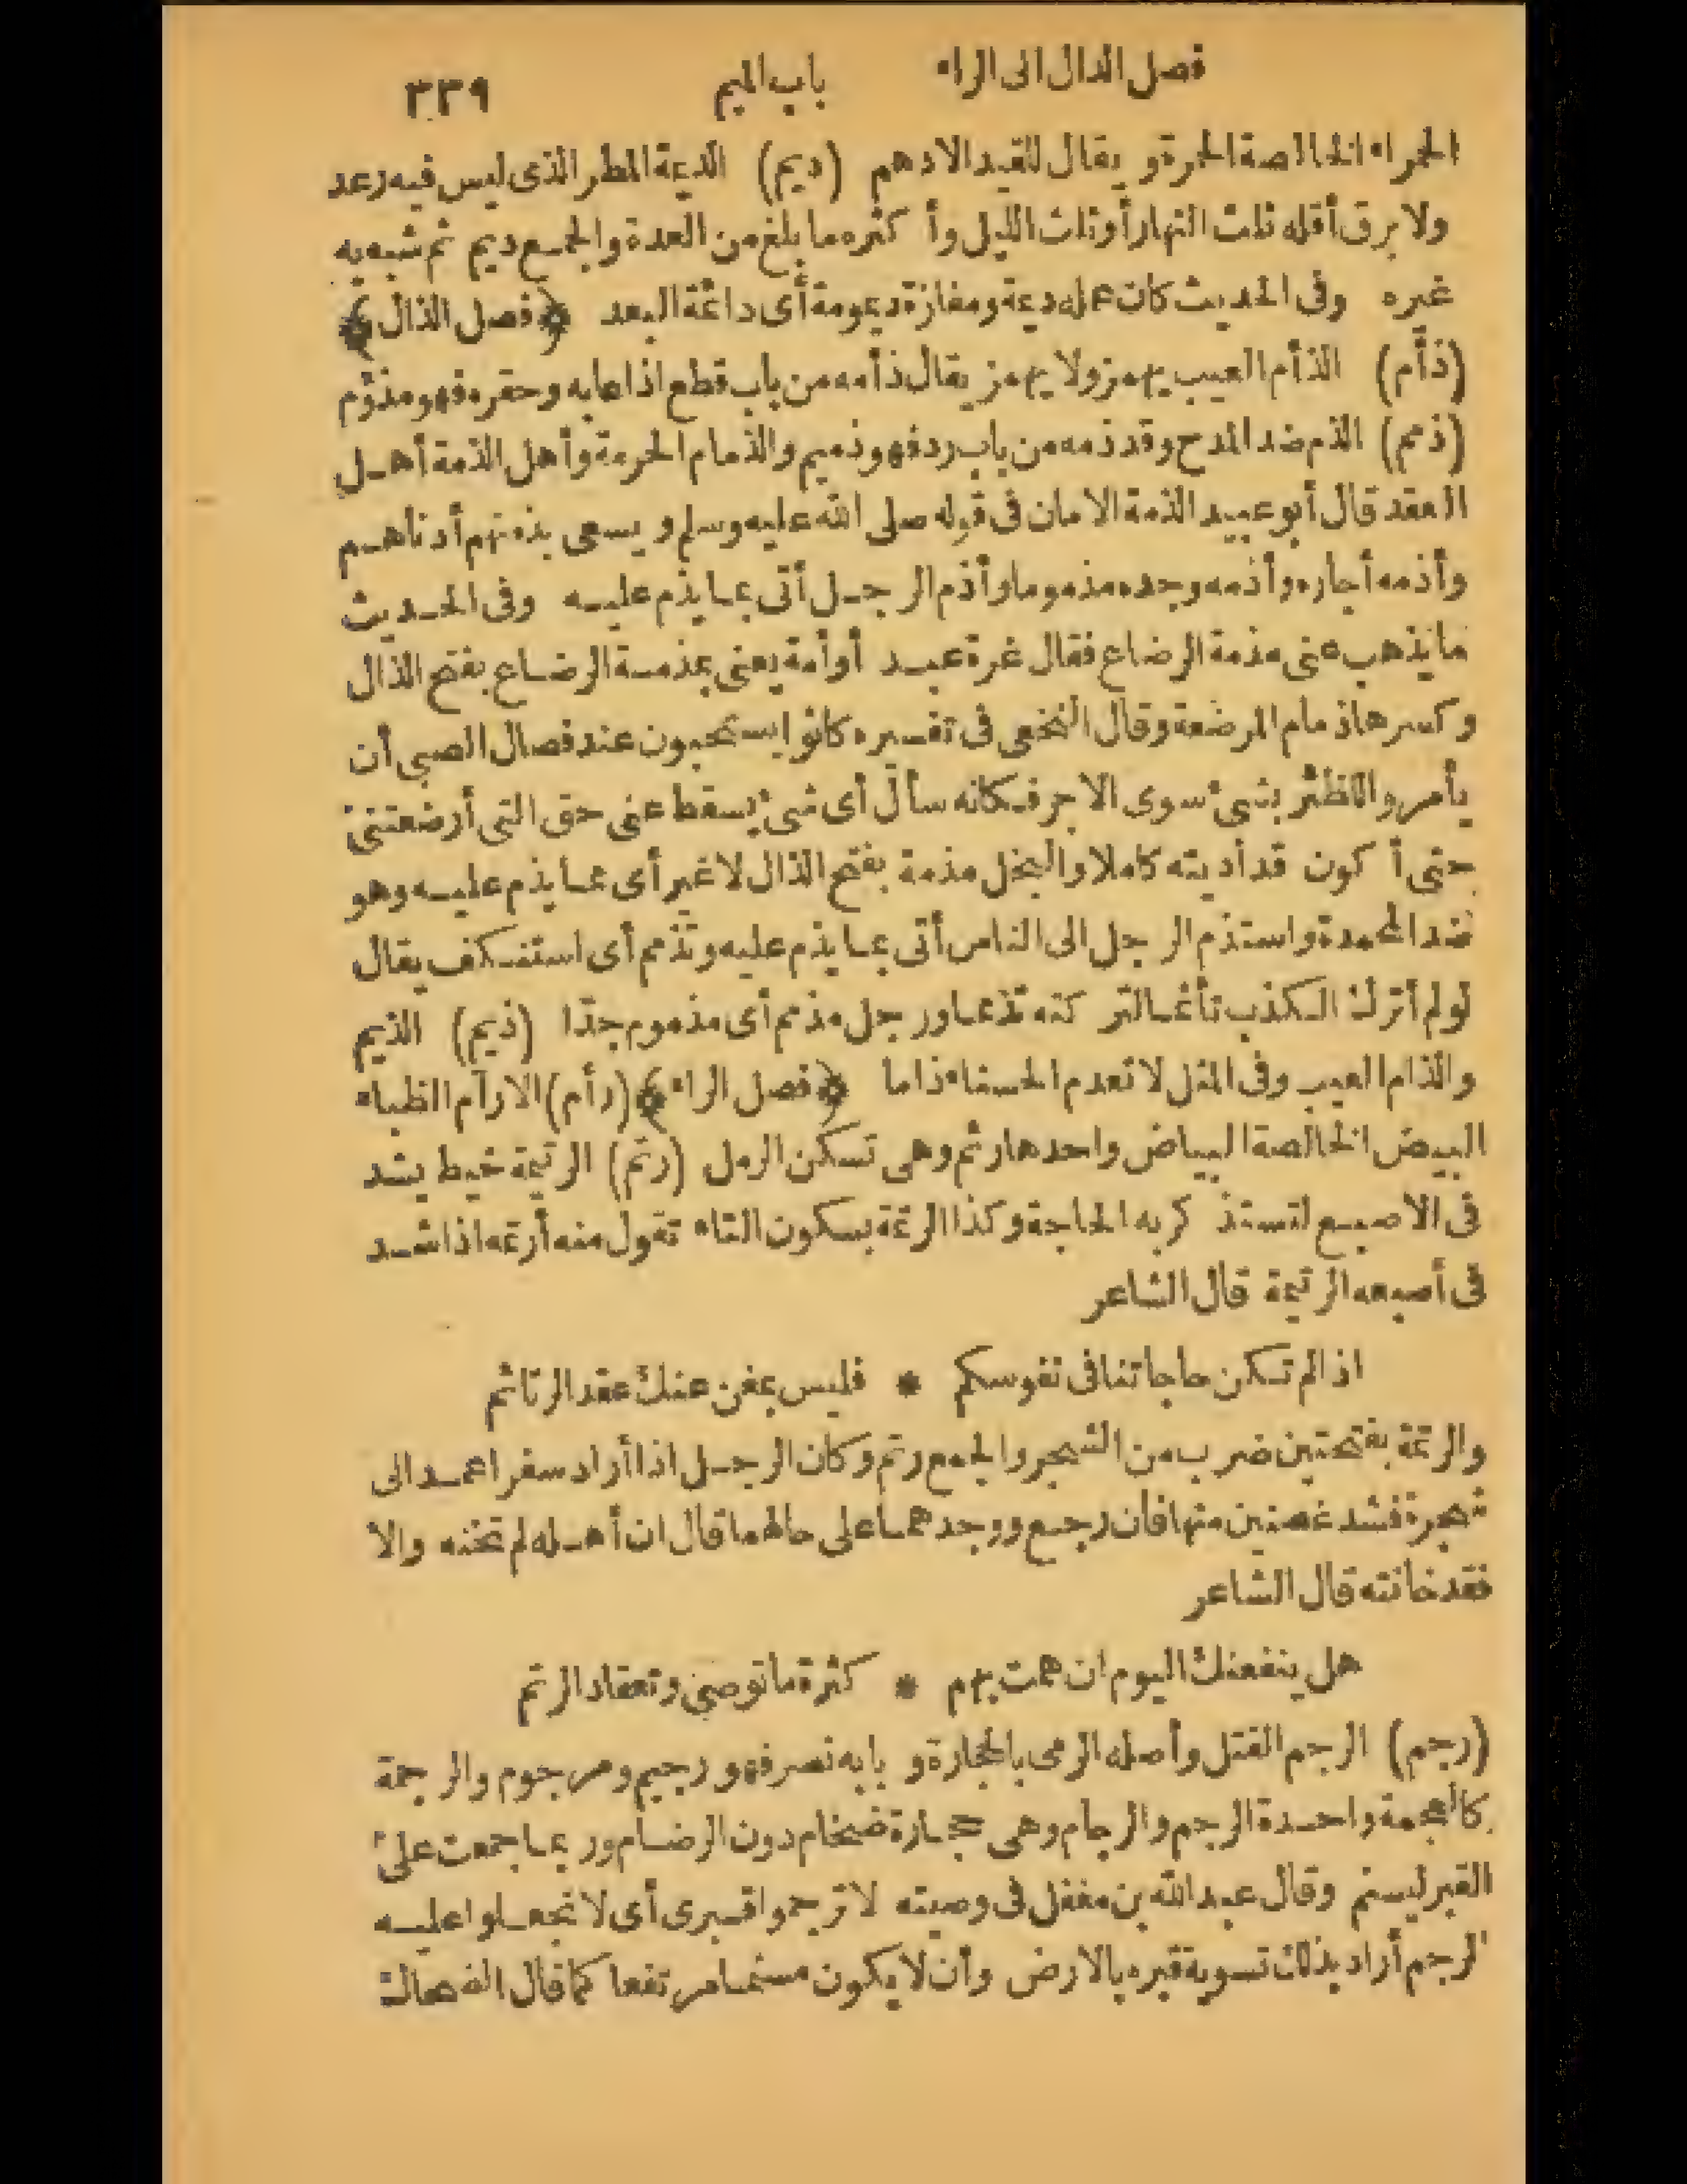 فصل الدال الى الراء باب الميم ٣٣٩
الحمراء الخالصة الحمرة ويقال للقيد الادهم (ديم) الديمة المطر الذى ليس فيه رعد
ولا برق أقله ثلث النهار أو ثلث الليل وأكثره ما بلغ من العدة والجمع ديم ثم شبه به
غيره وفى الحديث كان عمله ديمة ومفازة ديمومة أى دائمة البعد ﴿فصل الذال﴾
(ذأم) الذأم العيب يهمز ولا يهمز يقال ذأمه من باب قطع اذا عابه وحقره فهو مذؤم
(ذمم) الذم ضد المدح وقد ذمه من باب رد فهو ذميم والذمام الحرمة وأهل الذمة أهل
العقد قال أبو عبيد الذمة الامان فى قوله صلى الله عليه وسلم ويسعى بذمتهم أدناهم
وأذمه أجاره وأذمه وجده مذموما وأذم الرجل أتى بما يذم عليه وفى الحديث
ما يذهب عنى مذمة الرضاع فقال غرة عبد أو أمة يعنى بمذمة الرضاع بفتح الذال
وكسرها ذمام المرضعة وقال النخعى فى تفسيره كانوا يستحبون عند فصال الصبى أن
يأمروا للظئر بشئ سوى الاجر فكانه سأل أى شئ يسقط عنى حق التى أرضعتنى
حتى أكون قد أديته كاملا والبخل مذمة بفتح الذال لا غير أى مما يذم عليه وهو
ضد المحمدة واستذم الرجل الى الناس أتى بما يذم عليه وتذمم أى استنكف يقال
لو لم أترك الكذب تأثما لتركته تذمما ورجل مذمم أى مذموم جدّا (ذيم) الذيم
والذام العيب وفى المثل لا تعدم الحسناء ذاما ﴿فصل الراء﴾ (رأم) الارآم الظباء
البيض الخالصة البياض واحدها رئم وهى تسكن الرمل (رتم) الرتيمة خيط يشد
فى الاصبع لتستذكر به الحاجة وكذا الرتمة بسكون التاء تقول منه أرتمه اذا شد
فى أصبعه الرتيمة قال الشاعر
اذا لم تكن حاجاتنا فى نفوسكم * فليس بمغن عنك عقد الرتائم
والرتمة بفتحتين ضرب من الشجر والجمع رتم وكان الرجل اذا أراد سفرا عمد الى
شجرة فشد غصنين منها فان رجع ووجدهما على حالهما قال ان أهله لم تخنه والا
فقد خانته قال الشاعر
هل ينفعنك اليوم ان همت بهم * كثرة ما توصى وتعقاد الرتم
(رجم) الرجم القتل وأصله الرمى بالحجارة وبابه نصر فهو رجيم ومرجوم والرجمة
كالعجمة واحدة الرجم والرجام وهى حجارة ضخام دون الرضام وربما جمعت على
القبر ليسنم وقال عبد الله بن مغفل فى وصيته لا ترجموا قبرى أى لا تجعلوا عليه
الرجم أراد بذلك تسوية قبره بالارض وأن لا يكون مسنما مرتفعا كما قال الضحاك